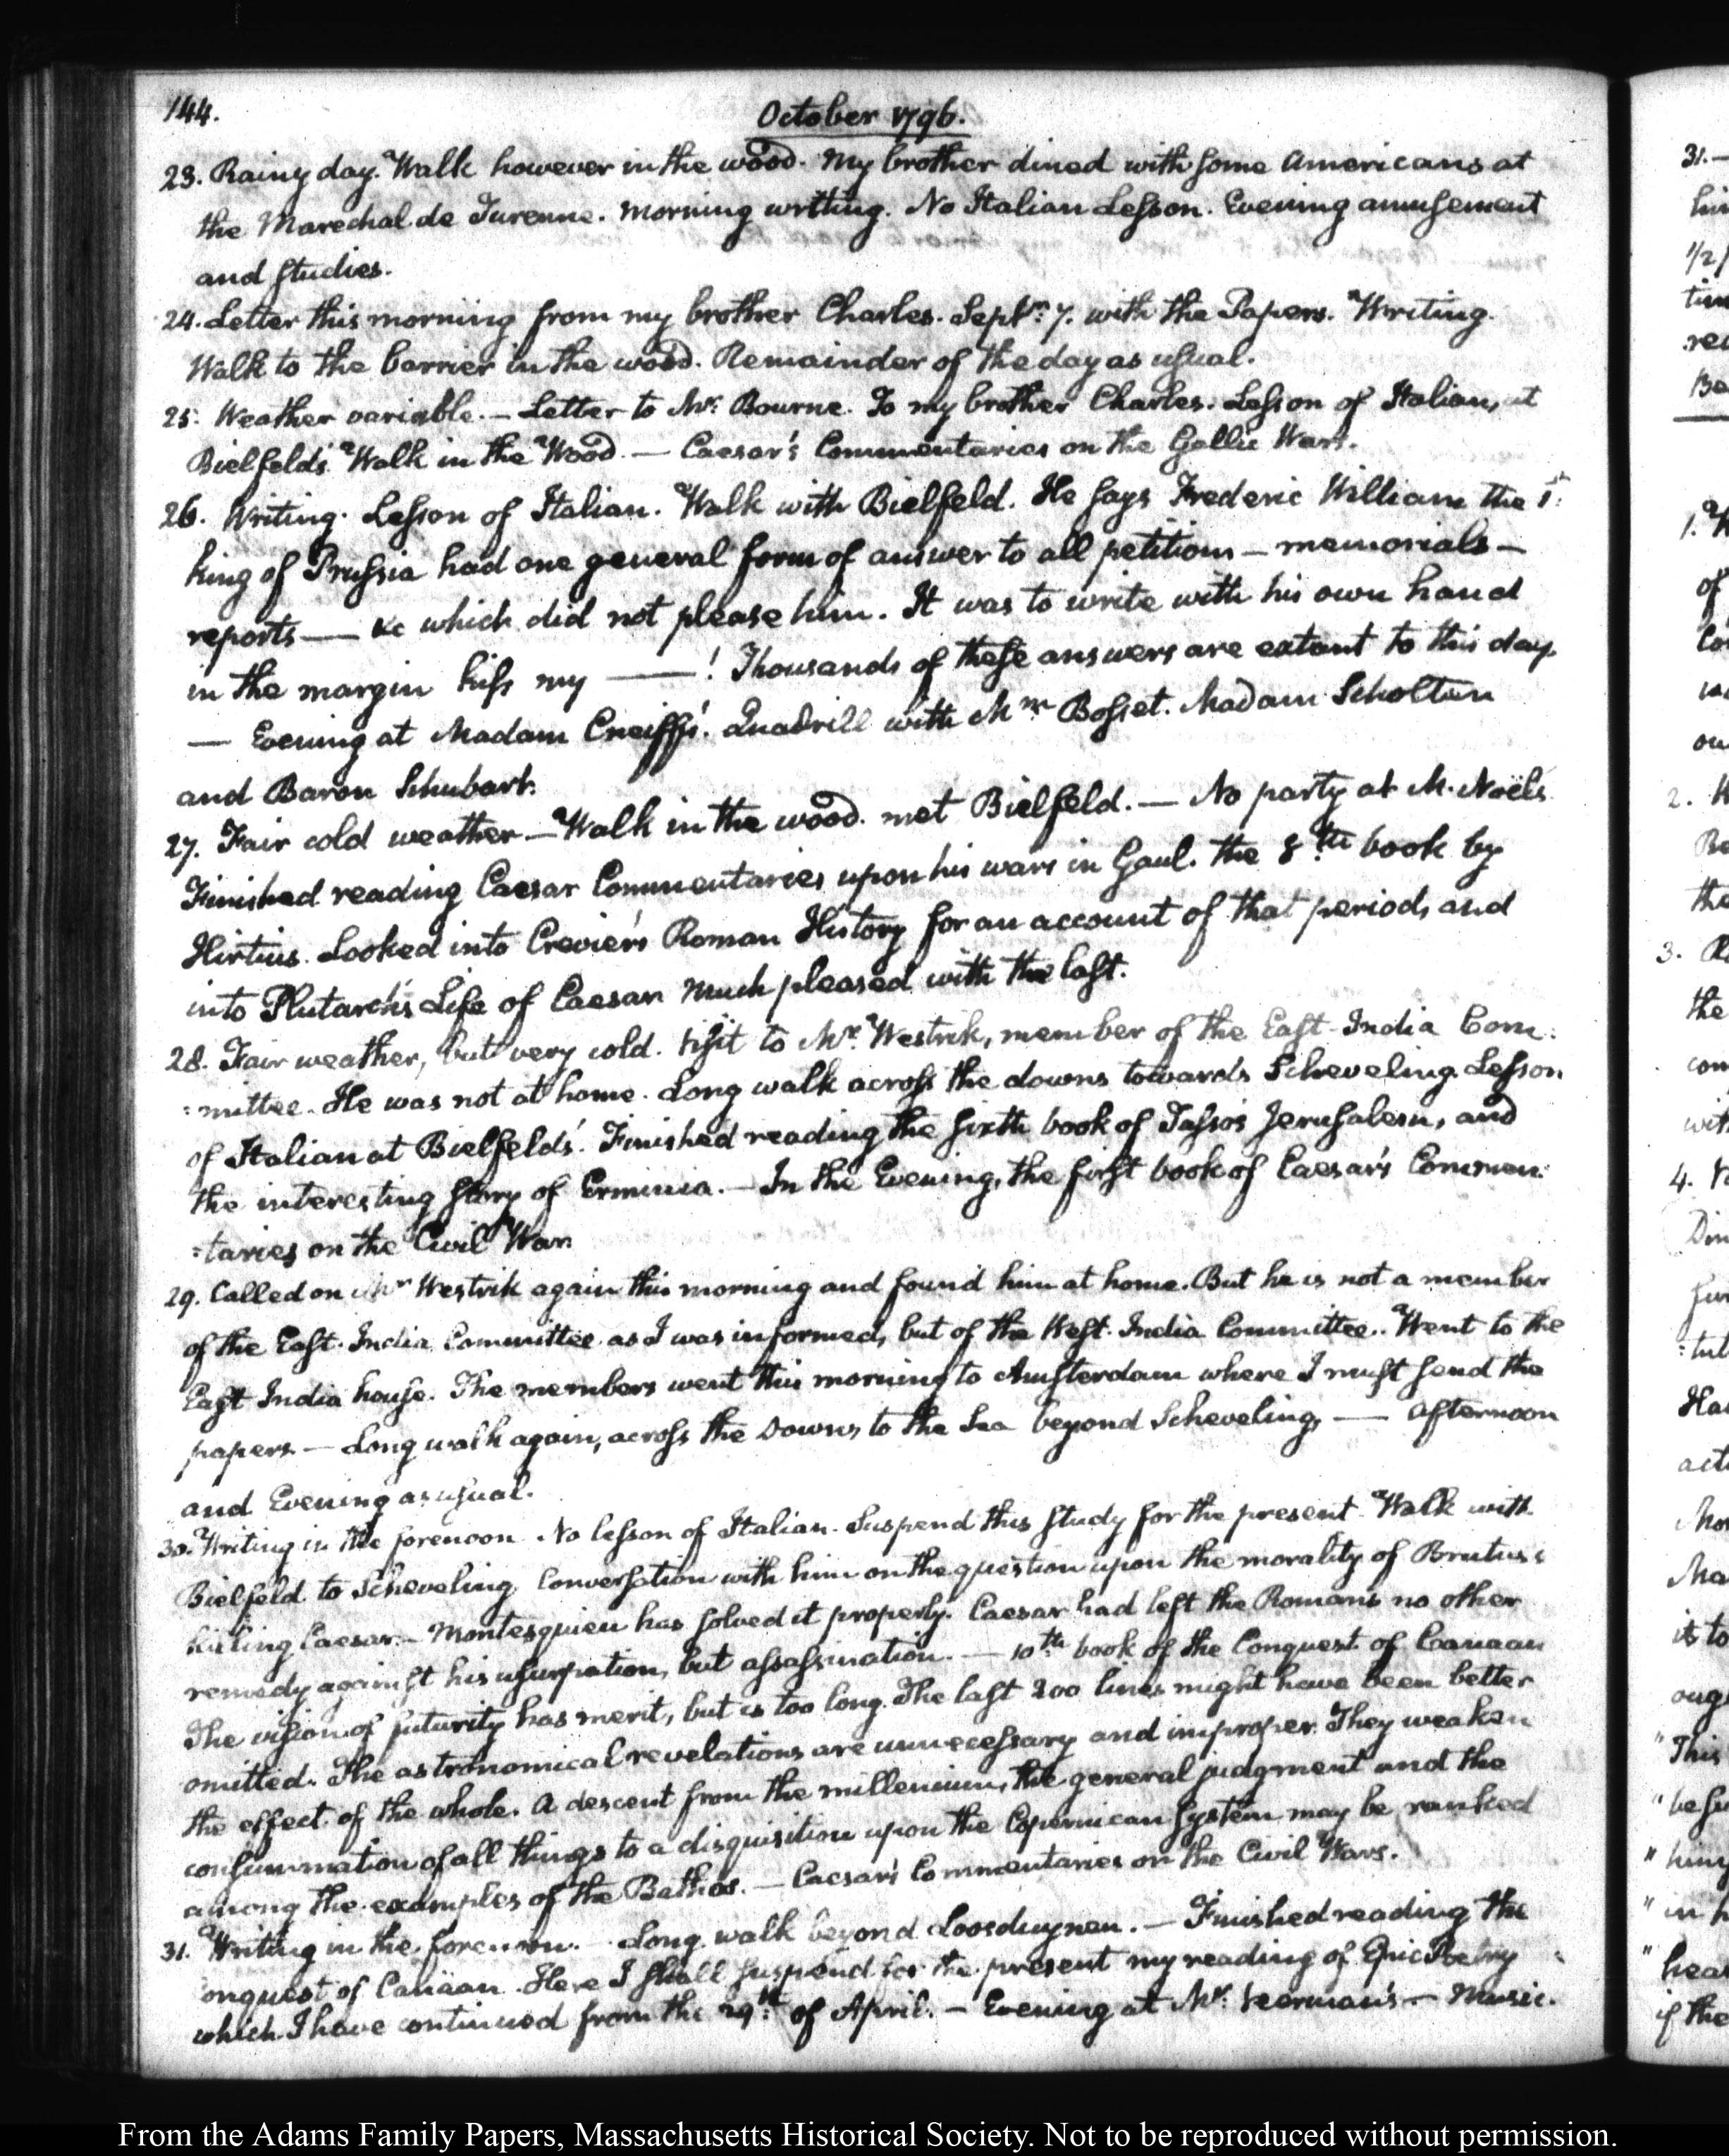 144.
October 1796.
23. Rainy day. Walk however in the wood. My brother dined with some Americans at
the Marechal de Turenne. Morning writing. No Italian Lesson. Evening amusement
and studies.
24. Letter this morning from my brother Charles. Septr: 7. with the Papers. Writing.
Walk to the barrier in the wood. Remainder of the day as usual.
25. Weather variable. — Letter to Mr: Bourne. To my brother Charles. Lesson of Italian, at
Bielfelds. Walk in the Wood. — Caesar's Commentaries on the Gallic Wars.
26. Writing. Lesson of Italian. Walk with Bielfeld. He says Frederic William the 1st:
king of Prussia had one general form of answer to all petitions — memorials —
reports — &c which did not please him. It was to write with his own hand
in the margin kiss my —! Thousands of these answers are extant to this day.
— Evening at Madam Cneiffs'. Quadrill with Mme Bosset. Madam Scholten
and Baron Schubart.
27. Fair cold weather — Walk in the wood. met Bielfeld. — No party at M. Noëls
Finished reading Caesar Commentaries upon his wars in Gaul. The 8th: book by
Hirtius. Looked into Crevier's Roman History for an account of that period, and
into Plutarch's Life of Caesar Much pleased with the last.
28. Fair weather, but very cold. Visit to Mr: Westrik, member of the East-India Com:
:mittee. He was not at home. Long walk across the downs towards Scheveling. Lesson
of Italian at Bielfelds'. Finished reading the sixth book of Tasso's Jerusalem, and
the interesting story of Erminia. — In the Evening, the first book of Caesar's Commen:
:taries on the Civil War.
29. Called on Mr Westrik again this morning and found him at home. But he is not a member
of the East-India Committee as I was informed, but of the West-India Committee. Went to the
East India house. The members went this morning to Amsterdam where I must send the
papers. — Long walk again, across the Downs to the Sea beyond Scheveling. — Afternoon
and Evening as usual.
30. Writing in the forenoon. No lesson of Italian. Suspend this study for the present. Walk with
Bielfeld to Scheveling. Conversation with him on the question upon the morality of Brutus's
killing Caesar. — Montesquieu has solved it properly. Caesar had left the Romans no other
remedy against his usurpation, but assassination. — 10th: book of the Conquest of Canaan
The vision of futurity has merit, but is too long. The last 200 lines might have been better
omitted. The astronomical revelations are unnecessary and improper. They weaken
the effect of the whole. A descent from the millenium, the general judgment and the
consummation of all things to a disquisition upon the Copernican system may be ranked
among the examples of the Bathos. — Caesar's Commentaries on the Civil Wars.
31. Writing in the forenoon. — Long walk beyond Loosduynen. — Finished reading the
Conquest of Canäan. Here I shall suspend for the present my reading of Epic Poetry
which I have continued from the 29th: of April. — Evening at Mr: Veerman's — Music.
From the Adams Family Papers, Massachusetts Historical Society. Not to be reproduced without permission.